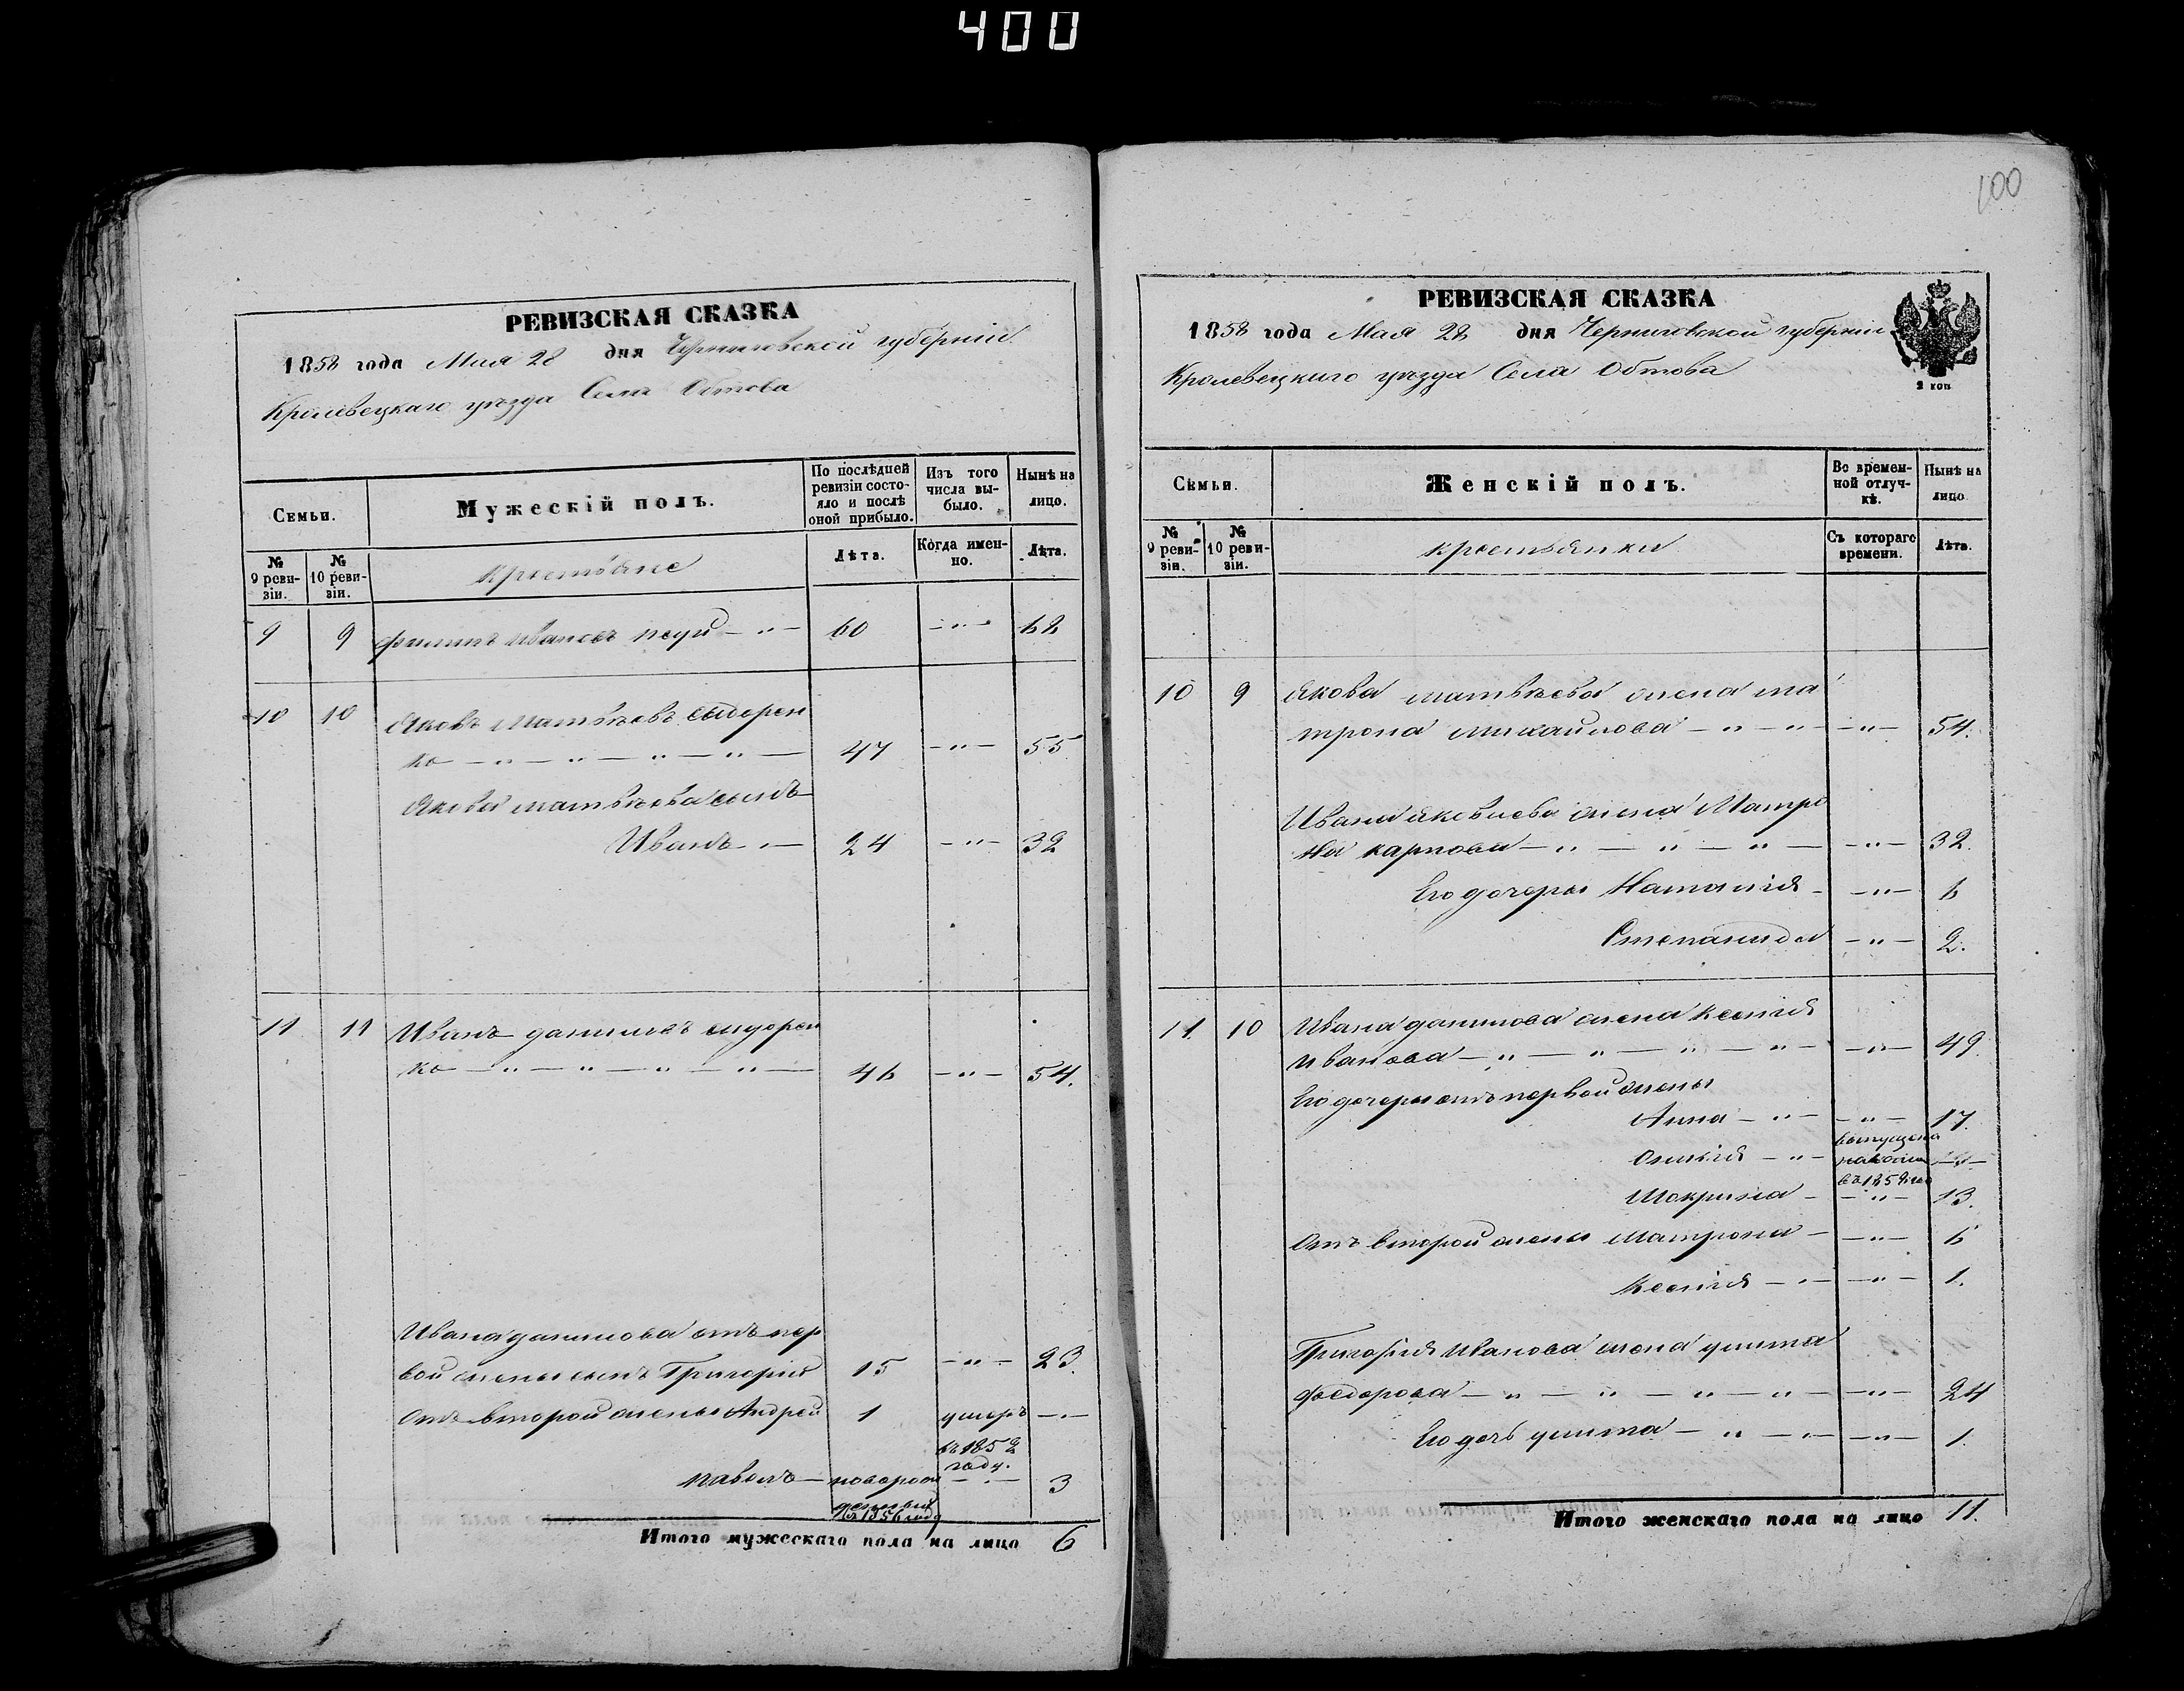 400
100
РЕВИЗСКАЯ СКАЗКА
1858 года Мая 28 дня Черниговской губерніи
Кролевецкаго уѣзда Села Обтова
Семьи.
Мужескій полъ.
По послѣдней ревизіи состояло и послѣ оной прибыло.
Изъ того числа выбыло.
Нынѣ на лицо.
№ 9 ревизіи.
№ 10 ревизіи.
крестьяне
Лѣта.
Когда именно.
Лѣта.
9 9 филипъ Ивановъ 60 62
10 10 Яковъ Матвѣевъ Сыдорен
ко 47 55
Якова матвѣева сынъ
Иванъ 24 32
11 11 Иванъ даниловъ сидорен
ко 46 54.
Ивана данилова отъ пер
вой жены сынъ Григорій 15 23.
Отъ второй жены Андрей 1 умеръ
въ 1852
году.
павелъ новорож 3
денный
въ 1856 году
Итого мужескаго пола на лицо 6
РЕВИЗСКАЯ СКАЗКА
1858 года Мая 28 дня Черниговской губерніи
Кролевецкаго уѣзда Села Обтова
2 коп
Семьи.
Женскій полъ.
Во временной отлучкѣ.
Нынѣ на лицо
№ 9 ревизіи.
№ 10 ревизіи.
крестьянки
Съ котораго времени.
Лѣта.
10 9 Якова матвѣева жена ма
трона михайлова 54.
Ивана Яковлева жена Матро
на карпова 32.
Его дочеры Наталия 6
Степанида 2.
11. 10 Ивана данилова жена Ксения
иванова 49.
Его дочеры отъ первой жены
Анна 17.
выпущена
въ 1852 году
Мокрина 13.
Отъ второй жены Матрона 6
Ксения 1.
Григория Иванова жена улита
федорова 24
Его дочь улита 1.
Итого женскаго пола на лицо 11.